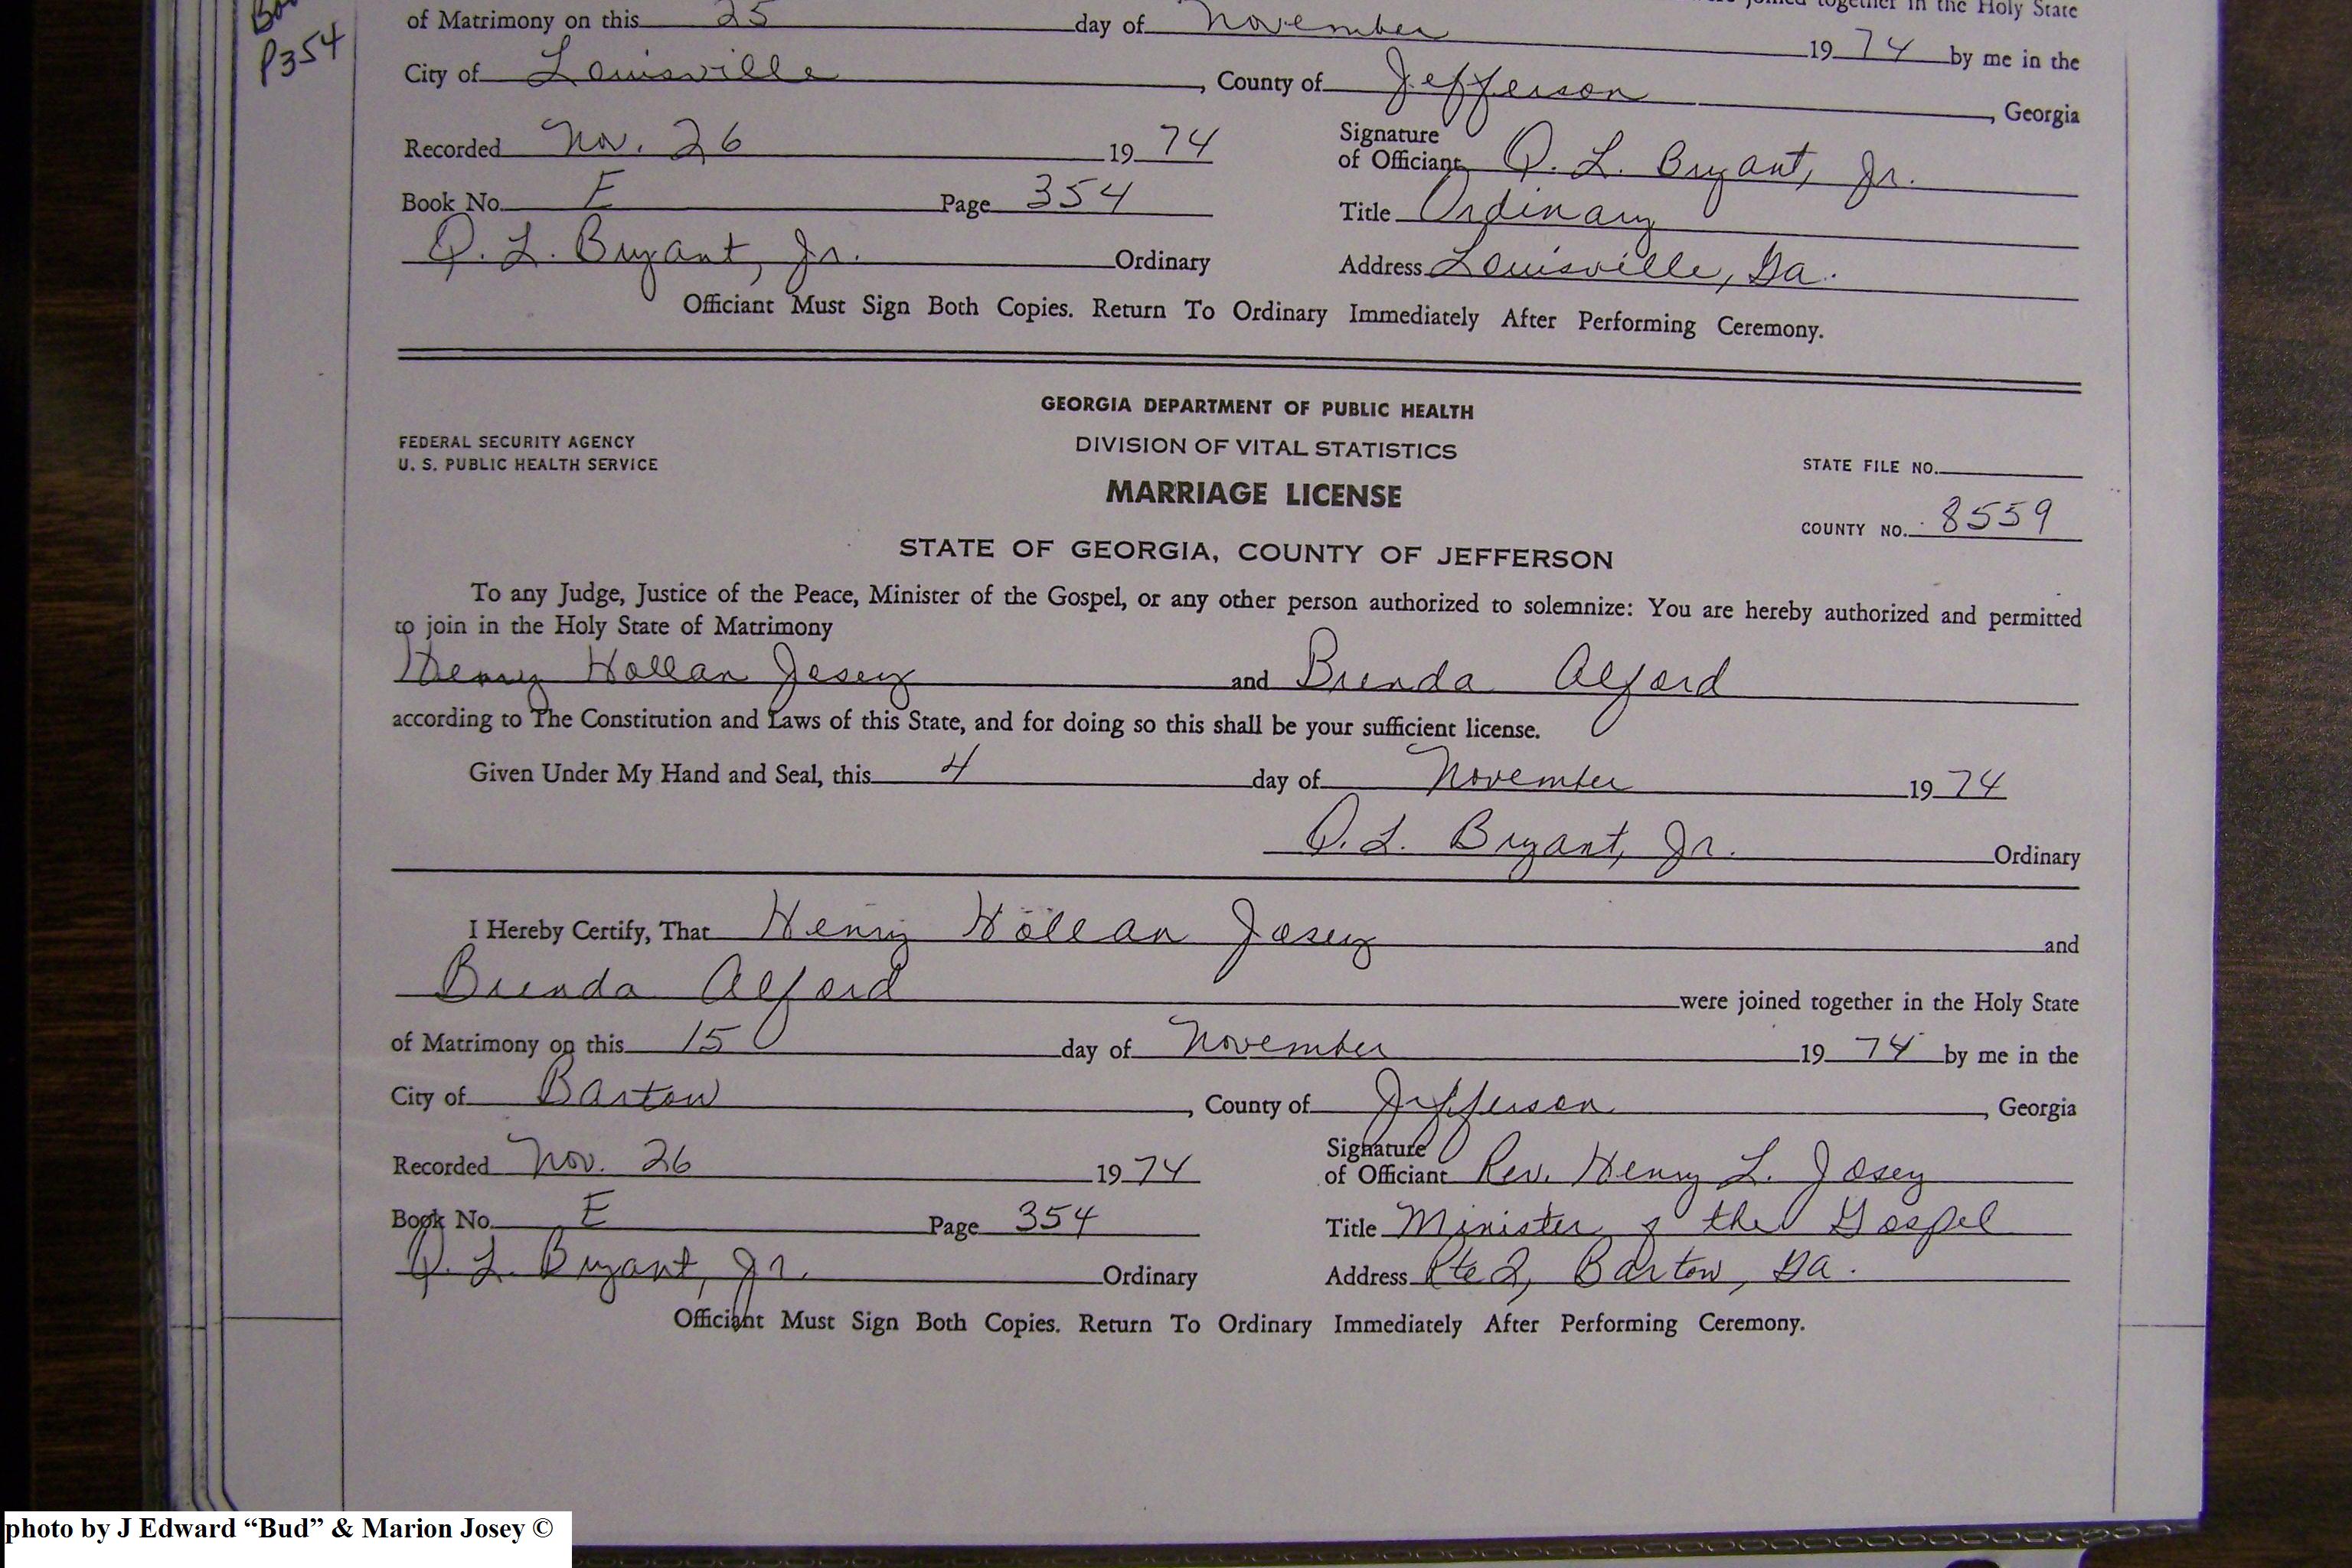 P354
were joined together in the Holy State
of Matrimony on this 25 day of November 1974 by me in the
City of Louisville, County of Jefferson, Georgia
Recorded Nov. 26 1974 Signature of Officiant Q. L. Bryant, Jr.
Book No. E Page 354 Title Ordinary
Q. L. Bryant, Jr. Ordinary Address Louisville, Ga.
Officiant Must Sign Both Copies. Return To Ordinary Immediately After Performing Ceremony.
GEORGIA DEPARTMENT OF PUBLIC HEALTH
FEDERAL SECURITY AGENCY DIVISION OF VITAL STATISTICS
U. S. PUBLIC HEALTH SERVICE STATE FILE NO.
MARRIAGE LICENSE
COUNTY NO. 8559
STATE OF GEORGIA, COUNTY OF JEFFERSON
To any Judge, Justice of the Peace, Minister of the Gospel, or any other person authorized to solemnize: You are hereby authorized and permitted
to join in the Holy State of Matrimony
Henry Hollan Josey and Brenda Alford
according to The Constitution and Laws of this State, and for doing so this shall be your sufficient license.
Given Under My Hand and Seal, this 4 day of November 1974
Q. L. Bryant, Jr. Ordinary
I Hereby Certify, That Henry Hollan Josey and
Brenda Alford were joined together in the Holy State
of Matrimony on this 15 day of November 1974 by me in the
City of Bartow, County of Jefferson, Georgia
Recorded Nov. 26 1974 Signature of Officiant Rev. Henry L. Josey
Book No. E Page 354 Title Minister of the Gospel
Q. L. Bryant, Jr. Ordinary Address Rte 2, Bartow, Ga.
Officiant Must Sign Both Copies. Return To Ordinary Immediately After Performing Ceremony.
photo by J Edward “Bud” & Marion Josey ©